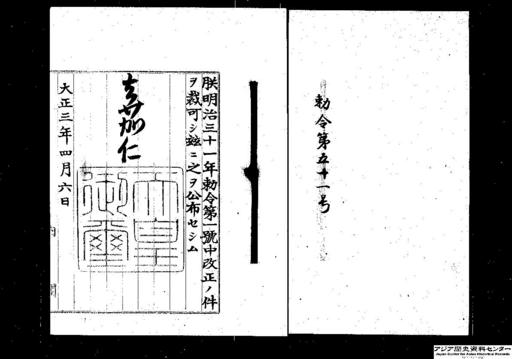 勅令第五十一号
朕明治三十一年勅令第一號中改正ノ件
ヲ裁可シ玆ニ之ヲ公布セシム
嘉仁
天皇
御璽
大正三年四月六日
内閣
アジア歴史資料センター
Japan Center for Asian Historical Records